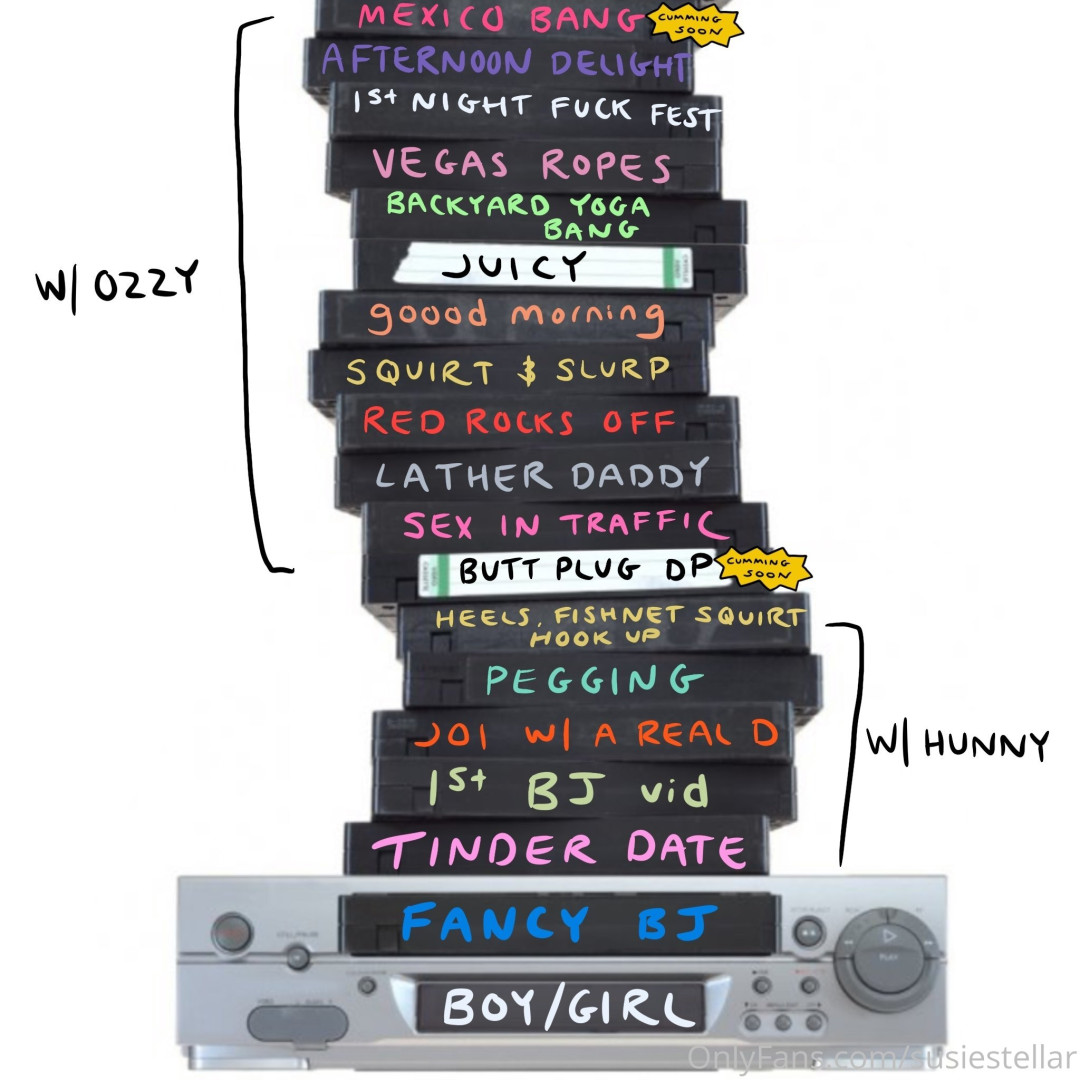 MEXICO BANG
CUMMING
SOON
AFTERNOON DELIGHT
1st NIGHT FUCK FEST
VEGAS ROPES
BACKYARD YOGA
BANG
W/ OZZY
JUICY
goood morning
SQUIRT & SLURP
RED ROCKS OFF
LATHER DADDY
SEX IN TRAFFIC
BUTT PLUG DP
CUMMING
SOON
HEELS, FISHNET SQUIRT
HOOK UP
PEGGING
JOI W/ A REAL D
W/ HUNNY
1st BJ vid
TINDER DATE
FANCY BJ
PLAY
BOY/GIRL
OnlyFans.com/susiestellar